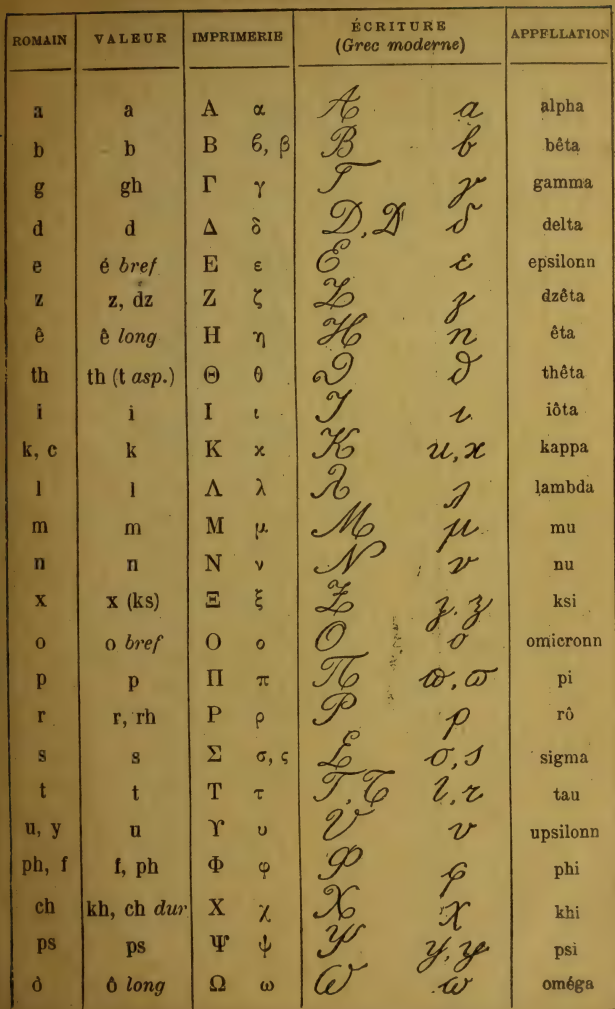 ROMAIN VALEUR IMPRIMERIE ÉCRITURE (Grec moderne) APPELLATION
a a Α α A a alpha
b b Β ϐ, β B b bêta
g gh Γ γ Γ γ gamma
d d Δ δ D, D δ delta
e é bref Ε ε E ε epsilonn
z z, dz Ζ ζ Z z dzêta
ê ê long Η η H n êta
th th (t asp.) Θ θ ϑ ϑ thêta
i i Ι ι I ι iôta
k, c k Κ κ K u, x kappa
l l Λ λ Λ λ lambda
m m Μ μ M μ mu
n n Ν ν N ν nu
x x (ks) Ξ ξ Z z, z ksi
o o bref Ο ο O o omicronn
p p Π π Π ϖ, ϖ pi
r r, rh Ρ ρ P ρ rô
s s Σ σ, ς Σ σ, s sigma
t t Τ τ T, T τ, τ tau
u, y u Υ υ V υ upsilonn
ph, f f, ph Φ φ Φ φ phi
ch kh, ch dur Χ χ X χ khi
ps ps Ψ ψ Ψ y, ψ psi
ô ô long Ω ω ω ω oméga